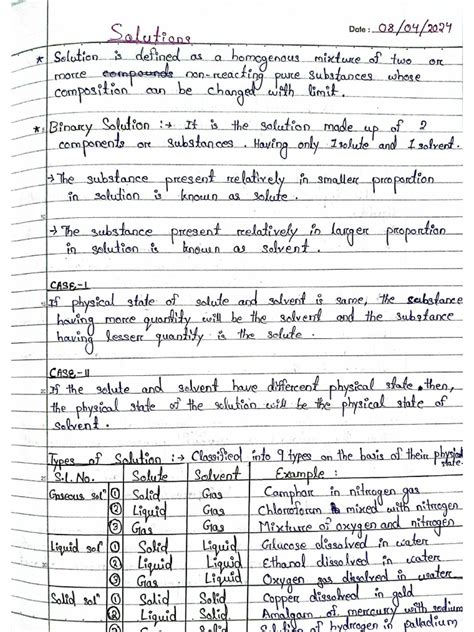 Solutions
Date: 08/04/2024
* Solution is defined as a homogenous mixture of two or
more compounds non-reacting pure substances whose
composition can be changed with limit.
* Binary Solution :→ It is the solution made up of 2
components or substances. Having only 1 solute and 1 solvent.
→ The substance present relatively in smaller proportion
in solution is known as solute.
→ The substance present relatively in larger proportion
in solution is known as solvent.
CASE-I
If physical state of solute and solvent is same, the substance
having more quantity will be the solvent and the substance
having lesser quantity is the solute.
CASE-II
If the solute and solvent have different physical state, then,
the physical state of the solution will be the physical state of
solvent.
Types of Solution :→ Classified into 9 types on the basis of their physical
state.
S.l. No. Solute Solvent Example :
Gaseous solⁿ ① Solid Gas Camphor in nitrogen gas
② Liquid Gas Chloroform mixed with nitrogen
③ Gas Gas Mixture of oxygen and nitrogen
Liquid solⁿ ① Solid Liquid Glucose dissolved in water
② Liquid Liquid Ethanol dissolved in water
③ Gas Liquid Oxygen gas dissolved in water
Solid solⁿ ① Solid Solid Copper dissolved in gold
② Liquid Solid Amalgam of mercury with sodium
Solid Solution of hydrogen in palladium